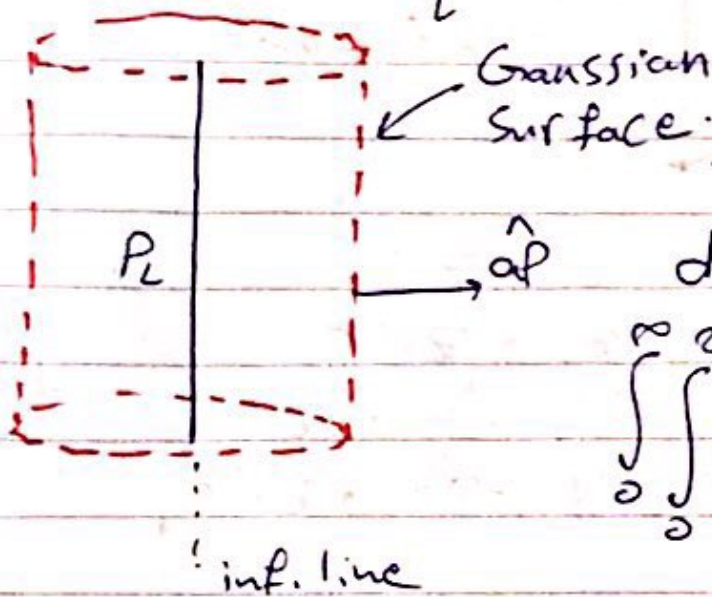 Gaussian
Surface.
ρL
âρ
∞
∫ ∫
0 0
inf. line